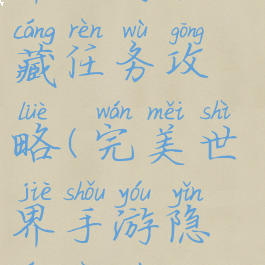 cáng rèn wù gōng
藏任务攻
lüè wán měi shì
略(完美世
jiè shǒu yóu yǐn
界手游隐